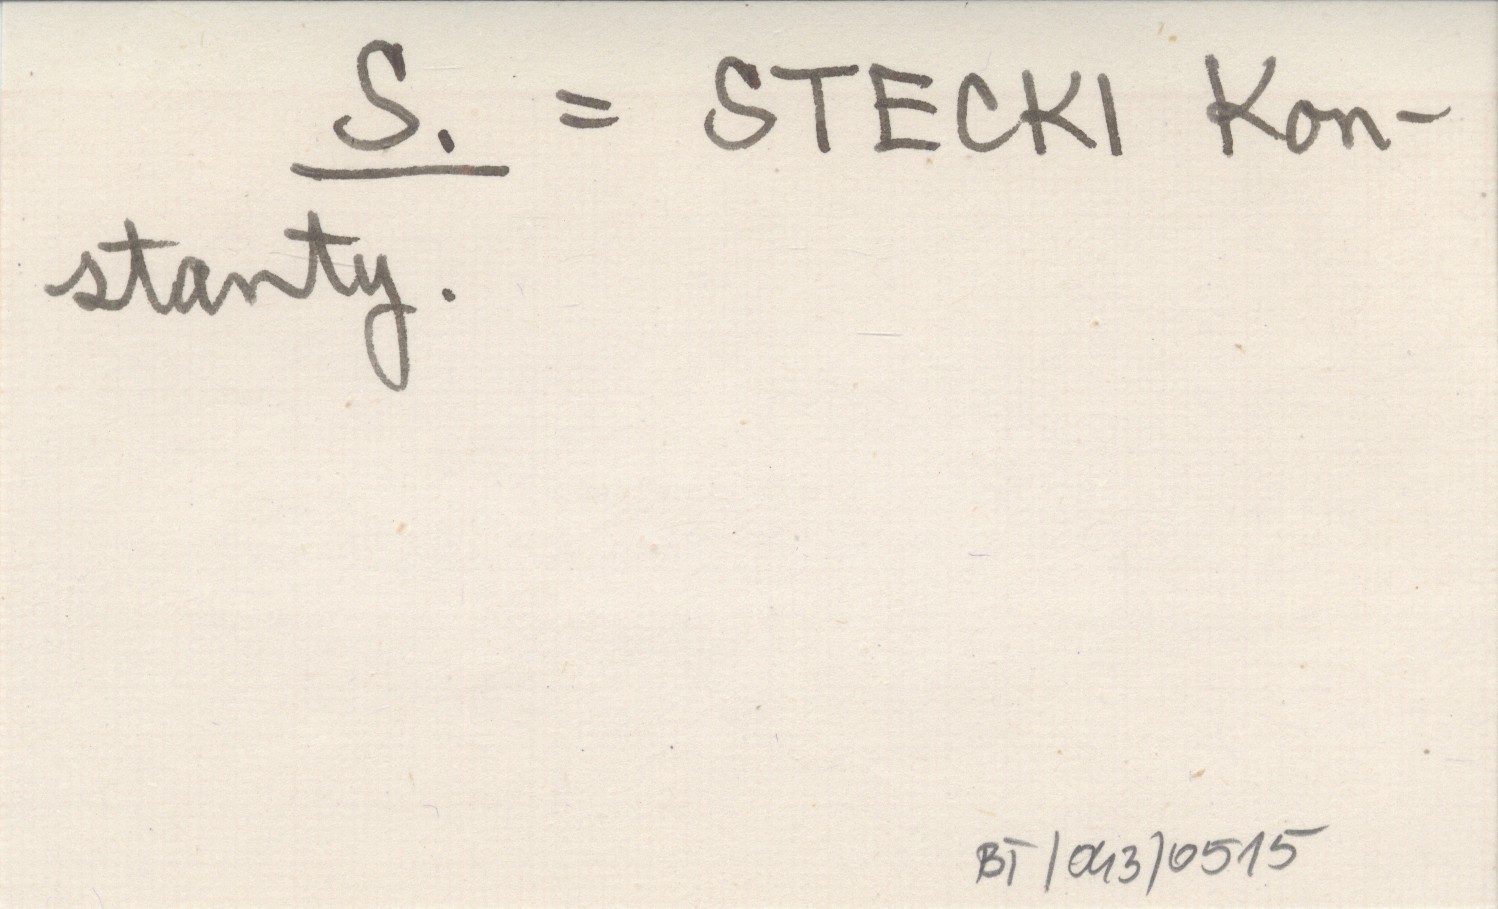 S. = STECKI Kon-
stanty.
BT/043/0515